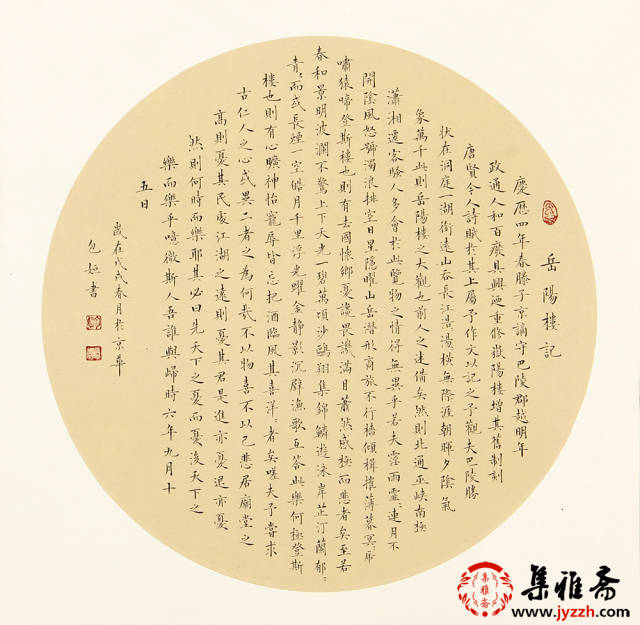 岳陽樓記
慶曆四年春滕子京謫守巴陵郡越明年
政通人和百廢具興廼重修嶽陽樓增其舊制刻
唐賢今人詩賦於其上屬予作文以記之予觀夫巴陵勝
狀在洞庭一湖銜遠山吞長江浩〻湯〻橫無際涯朝暉夕陰氣
象萬千此則岳陽樓之大觀也前人之述備矣然則北通巫峽南極
瀟湘遷客騷人多會於此覽物之情得無異乎若夫霪雨霏〻連月不
開陰風怒號濁浪排空日星隱曜山岳潛形商旅不行檣傾楫摧薄暮冥〻虎
嘯猿啼登斯樓也則有去國懷鄉憂讒畏譏滿目蕭然感極而悲者矣至若
春和景明波瀾不驚上下天光一碧萬頃沙鷗翔集錦鱗遊泳岸芷汀蘭郁〻
青〻而或長煙一空皓月千里浮光耀金靜影沉璧漁歌互答此樂何極登斯
樓也則有心曠神怡寵辱皆忘把酒臨風其喜洋〻者矣嗟夫予嘗求
古仁人之心或異二者之為何哉不以物喜不以己悲居廟堂之
高則憂其民處江湖之遠則憂其君是進亦憂退亦憂
然則何時而樂耶其必曰先天下之憂而憂後天下之
樂而樂乎噫微斯人吾誰與歸時六年九月十
五日
歲在戊戌春月於京華
包 書
集雅斋
集雅斋
www.jyzzh.com